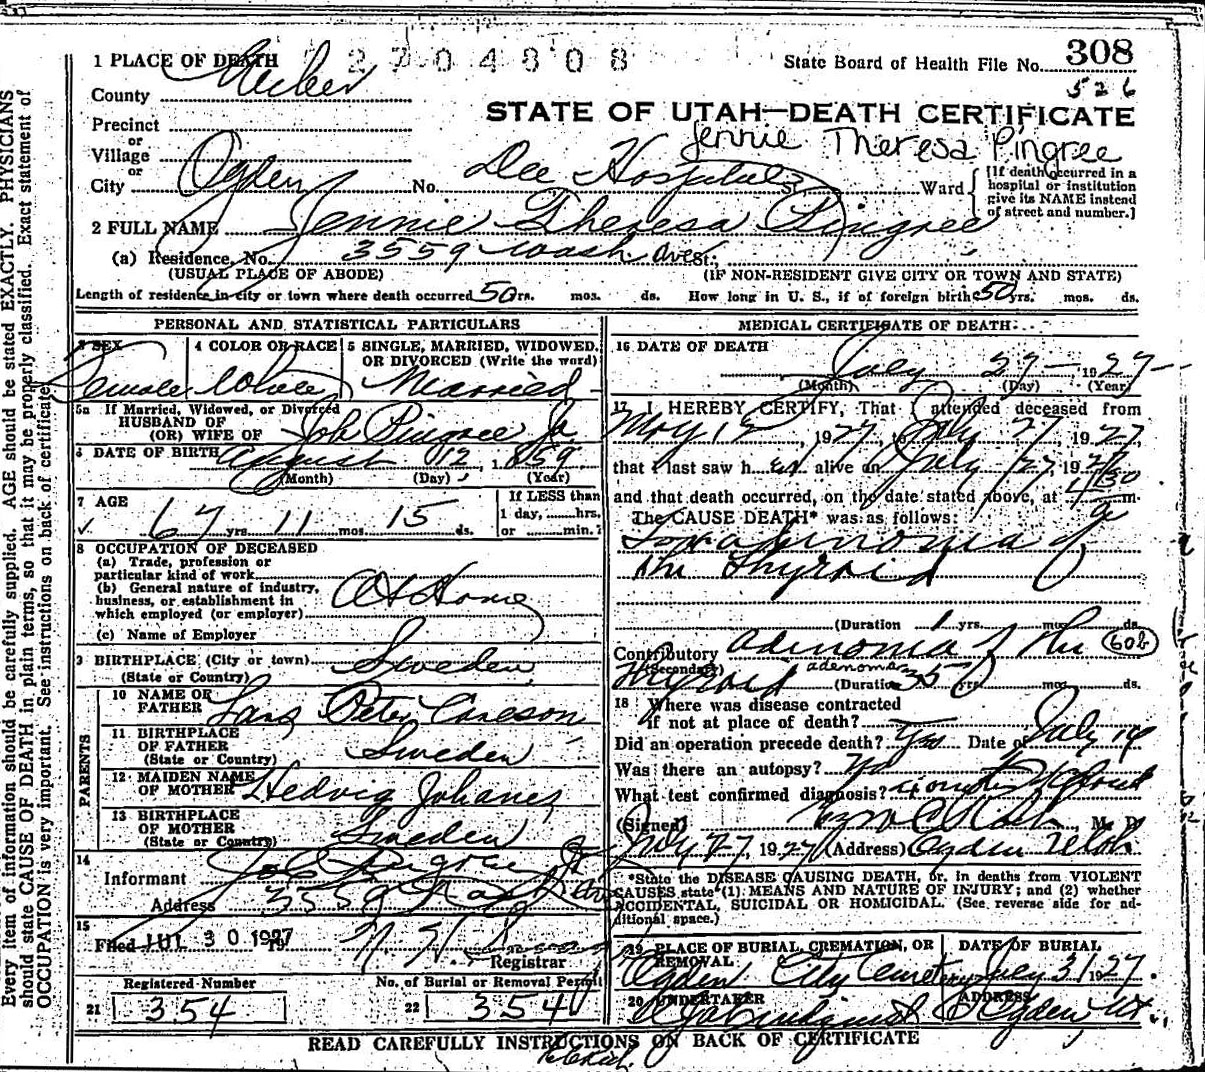 2704808
1 PLACE OF DEATH
State Board of Health File No. 308
526
County Weber
STATE OF UTAH—DEATH CERTIFICATE
Precinct
or
Village
Jennie Theresa Pingree
or
City Ogden No. Dee Hospital St. Ward
[If death occurred in a hospital or institution give its NAME instead of street and number.]
2 FULL NAME Jennie Theresa Pingree
(a) Residence, No. 3559 Wash. Ave St.,
(USUAL PLACE OF ABODE) (IF NON-RESIDENT GIVE CITY OR TOWN AND STATE)
Length of residence in city or town where death occurred 50 yrs. mos. ds. How long in U. S., if of foreign birth 50 yrs. mos. ds.
PERSONAL AND STATISTICAL PARTICULARS
3 SEX
Female
4 COLOR OR RACE
White
5 SINGLE, MARRIED, WIDOWED, OR DIVORCED (Write the word)
Married
5a If Married, Widowed, or Divorced
HUSBAND OF
(OR) WIFE OF Job Pingree Jr
6 DATE OF BIRTH August 12, 1859
(Month) (Day) (Year)
7 AGE
67 yrs. 11 mos. 15 ds.
If LESS than
1 day, ......hrs.
or ......min.?
8 OCCUPATION OF DECEASED
(a) Trade, profession or
particular kind of work
(b) General nature of industry,
business, or establishment in
which employed (or employer)
At Home
(c) Name of Employer
9 BIRTHPLACE (City or town) Sweden
(State or Country)
PARENTS
10 NAME OF
FATHER Lars Peter Carlson
11 BIRTHPLACE
OF FATHER Sweden
(State or Country)
12 MAIDEN NAME
OF MOTHER Hedvig Johanes
13 BIRTHPLACE
OF MOTHER Sweden
(State or Country)
14
Informant Job Pingree Jr
Address 3559 Wash Ave
15
Filed JUL 30 1927
Registrar
Registered Number
21 354
No. of Burial or Removal Permit
22 354
MEDICAL CERTIFICATE OF DEATH
16 DATE OF DEATH
July 27 1927
(Month) (Day) (Year)
17 I HEREBY CERTIFY, That I attended deceased from
May 12, 1927, to July 27, 1927
that I last saw her alive on July 27, 1927
and that death occurred, on the date stated above, at 1/30 a m.
The CAUSE DEATH* was as follows:
Toxadinomia of
the Thyroid
(Duration 1 yrs. mos. ds.
Contributory adinomia of the 60b
(Secondary)
Thyroid adenoma (Duration 35 yrs. mos. ds.
18 Where was disease contracted
if not at place of death?
Did an operation precede death? Yes Date of July 14
Was there an autopsy? No
What test confirmed diagnosis?
(Signed) M. D.
July 27, 1927 (Address) Ogden Utah
*State the DISEASE CAUSING DEATH, or, in deaths from VIOLENT
CAUSES, state (1) MEANS AND NATURE OF INJURY; and (2) whether
ACCIDENTAL, SUICIDAL OR HOMICIDAL. (See reverse side for ad-
ditional space.)
19 PLACE OF BURIAL, CREMATION, OR REMOVAL
Ogden City Cemetery
DATE OF BURIAL
July 31 1927
20 UNDERTAKER
ADDRESS
Ogden Ut
READ CAREFULLY INSTRUCTIONS ON BACK OF CERTIFICATE
Every item of information should be carefully supplied. AGE should be stated EXACTLY. PHYSICIANS
should state CAUSE OF DEATH in plain terms, so that it may be properly classified. Exact statement of
OCCUPATION is very important. See instructions on back of certificate.